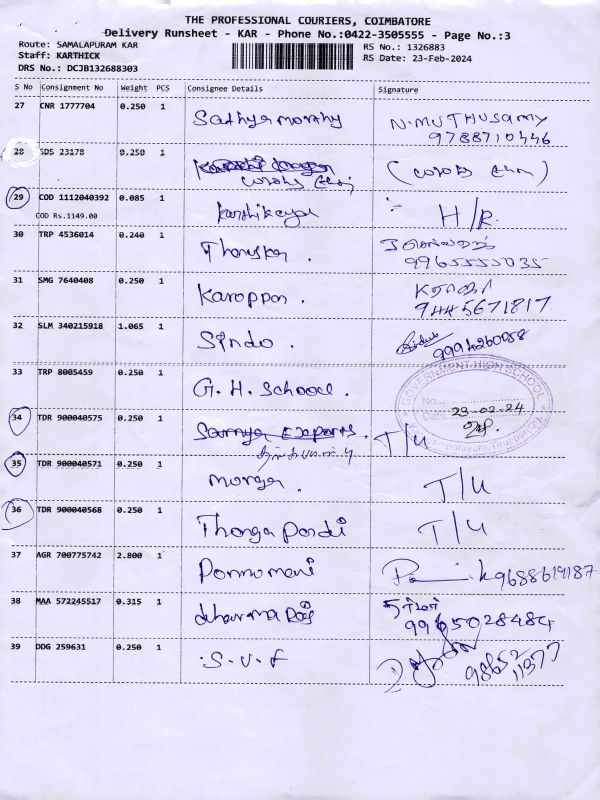 THE PROFESSIONAL COURIERS, COIMBATORE
Delivery Runsheet - KAR - Phone No.:0422-3505555 - Page No.:3
Route: SAMALAPURAM KAR
Staff: KARTHICK
DRS No.: DCJB132688303
RS No.: 1326883
RS Date: 23-Feb-2024
S No Consignment No Weight PCS Consignee Details Signature
27 CNR 1777704 0.250 1 Sathyamorthy N.MUTHUSAMY
9788710446
28 SDS 23178 0.250 1
29 COD 1112040392 0.085 1 karthikeyan :- H/R
COD Rs.1149.00
30 TRP 4536014 0.240 1
9965555035
31 SMG 7640408 0.250 1 Karoppan .
9445671817
32 SLM 340215918 1.065 1 Sindo . 9994260058
33 TRP 8005459 0.250 1 G. H. School .
GOVERNMENT HIGH SCHOOL
No.
Date 23-02-24
34 TDR 900040575 0.250 1 Samya Exports . T/U
35 TDR 900040571 0.250 1 T/U
36 TDR 900040568 0.250 1 Thanga Pandi T/U
37 AGR 700775742 2.800 1 Ponmomani 9688619187
38 MAA 572245517 0.315 1 dharmaRaj
9965028484
39 DDG 259631 0.250 1 .S.V.F 98652 11377